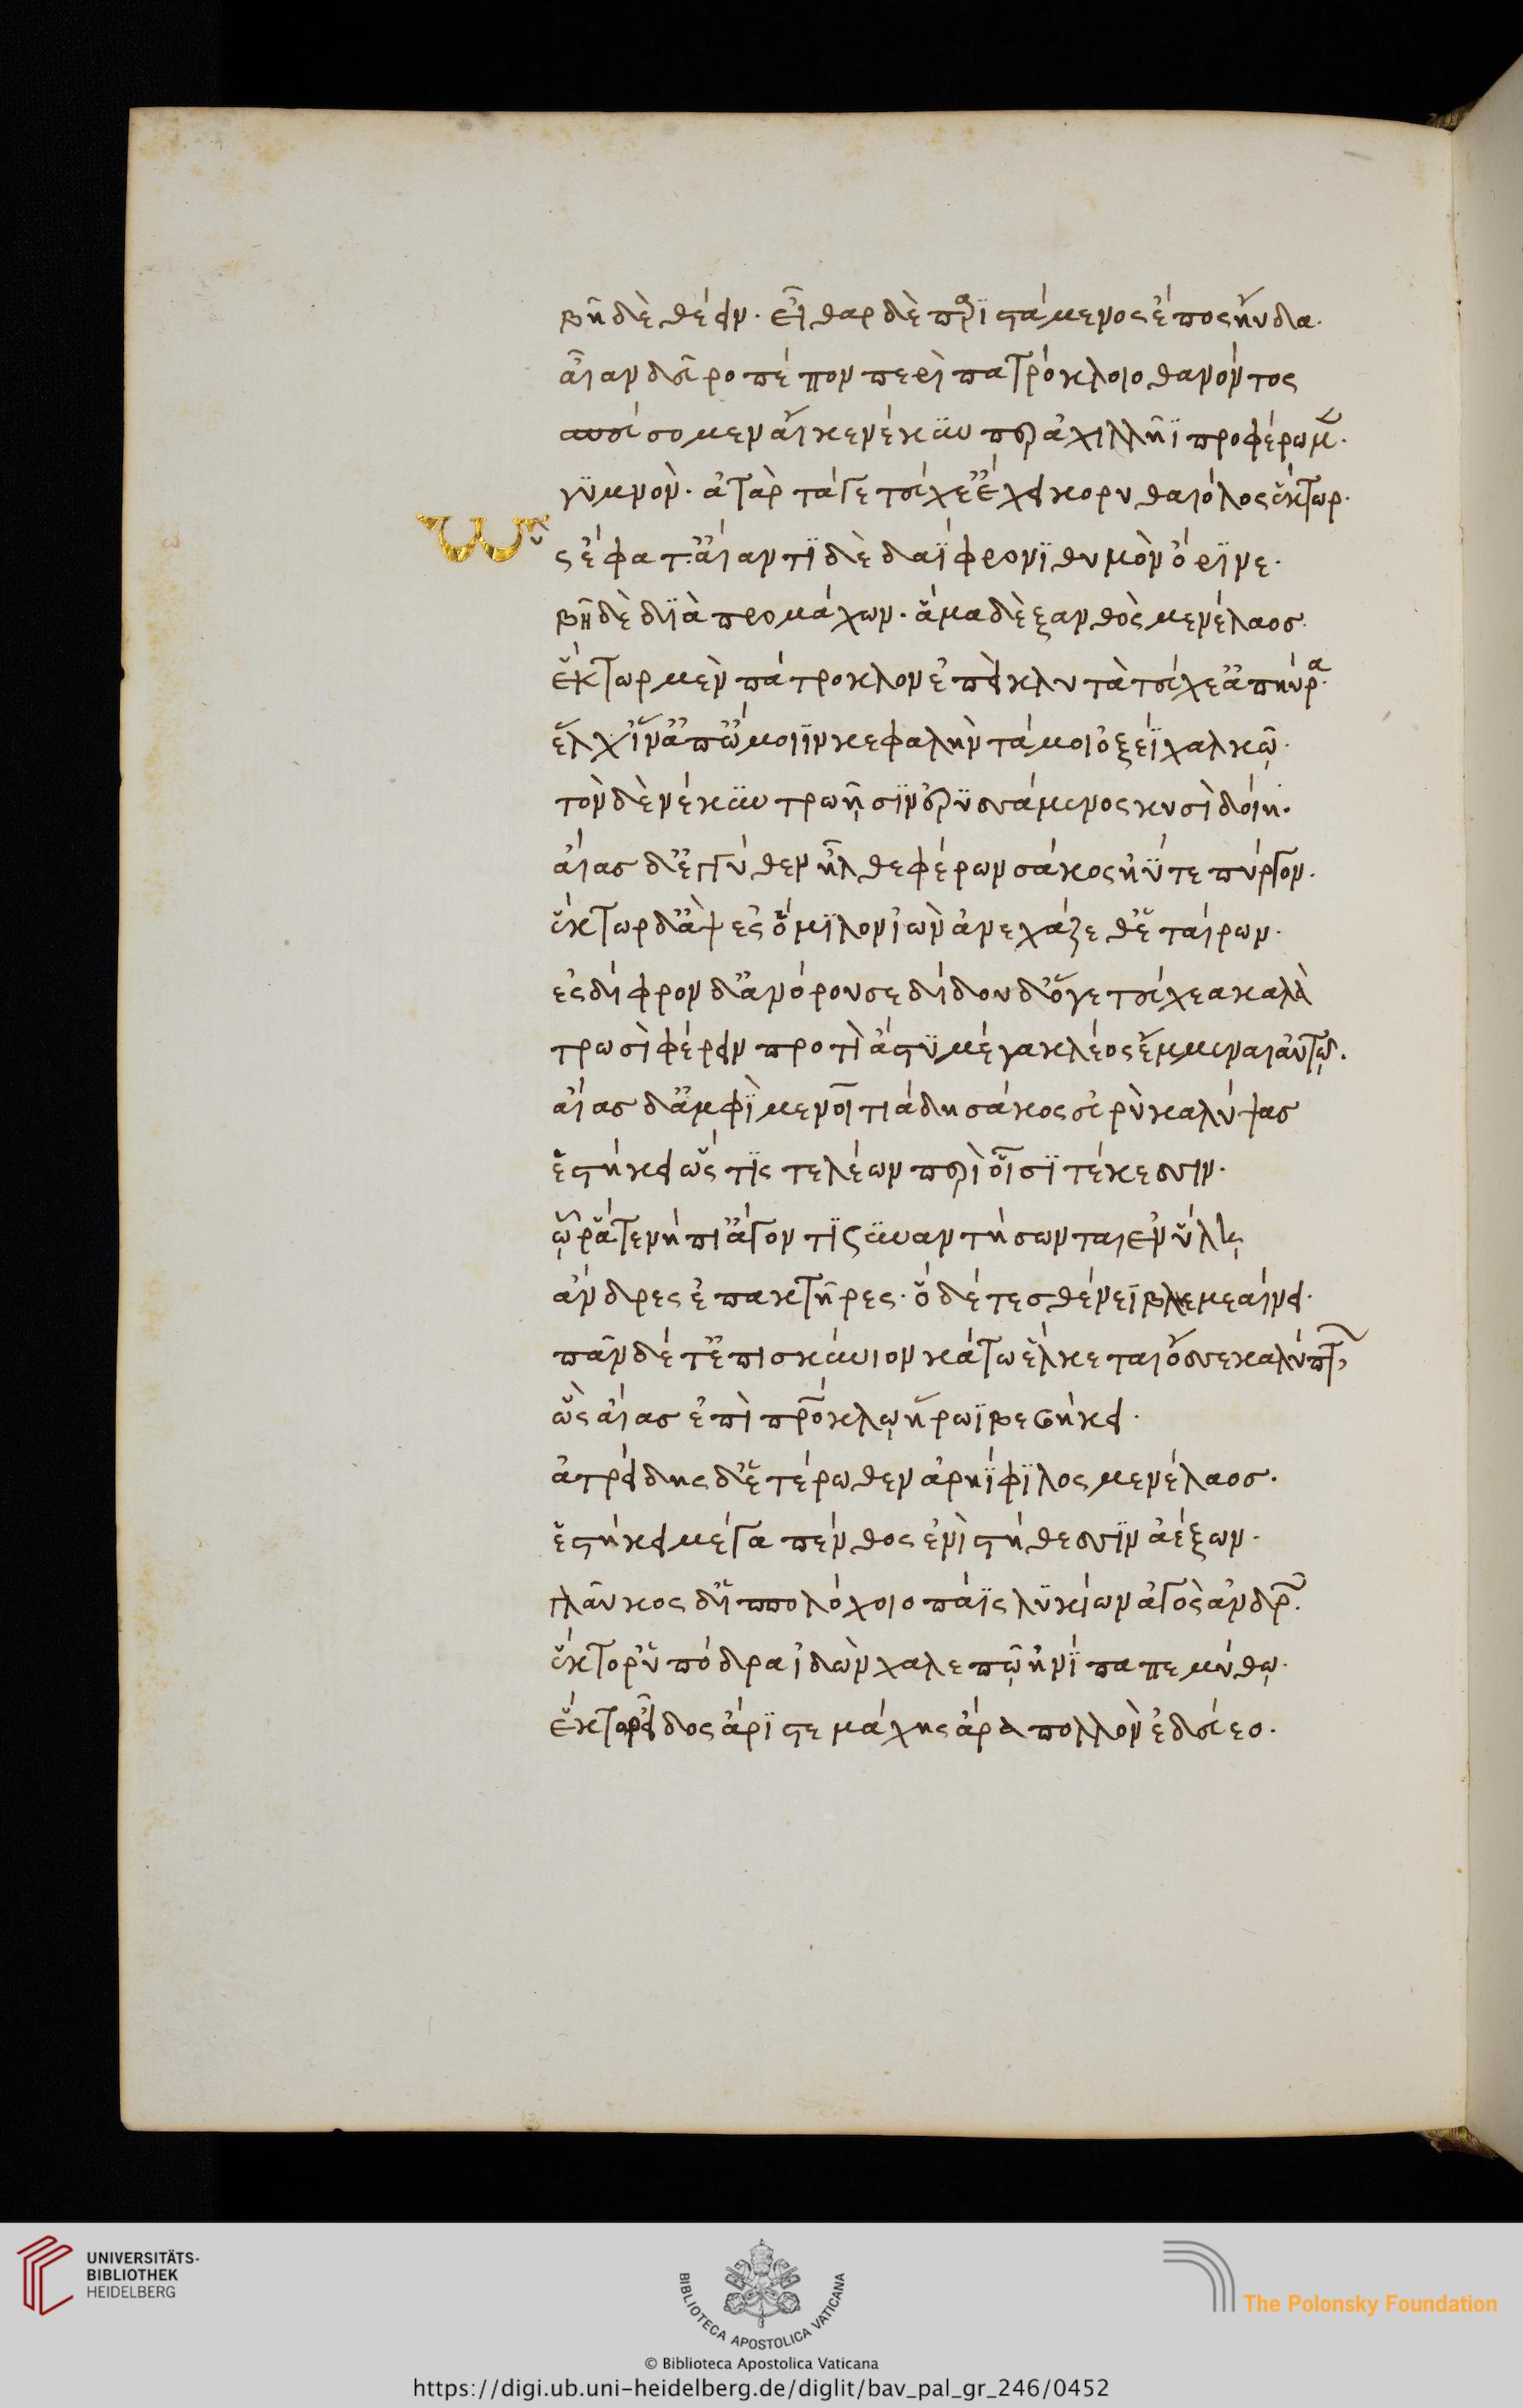 βῆ δὲ θέειν. εἶθαρ δὲ παριστάμενος ἔπος ηὔδα.
αἶαν δεῦρο πέπον περὶ πατρόκλοιο θανόντος
σπεύσομεν αἴ κε νέκυν περ ἀχιλλῆϊ προφέρωμεν.
γυμνὸν. ἀτὰρ τάγε τεύχε' ἔχει κορυθαιόλος ἕκτωρ.
ὣς ἔφατ' αἴαντι δὲ δαΐφρονι θυμὸν ὄρινε.
βῆ δὲ διὰ προμάχων. ἅμα δὲ ξανθὸς μενέλαος.
ἕκτωρ μὲν πάτροκλον ἐπεὶ κλυτὰ τεύχε' ἀπηύρα.
ἕλχ' ἵν' ἀπ' ὤμοιιν κεφαλὴν τάμοι ὀξέϊ χαλκῷ.
τὸν δὲ νέκυν τρωῇσιν ἐρυσσάμενος κυσὶ δοίη.
αἴας δ' ἐγγύθεν ἦλθε φέρων σάκος ἠΰτε πύργον.
ἕκτωρ δ' ἂψ ἐς ὅμιλον ἰὼν ἀνεχάζεθ' ἑταίρων.
ἐς δίφρον δ' ἀνόρουσε δίδου δ' ὅγε τεύχεα καλὰ
τρωσὶ φέρειν προτὶ ἄστυ μέγα κλέος ἔμμεναι αὐτῷ.
αἴας δ' ἀμφὶ μενοιτιάδῃ σάκος εὐρὺ καλύψας
ἑστήκει ὥς τίς τε λέων περὶ οἷσι τέκεσσιν.
ᾧ ῥά τε νήπι' ἄγοντι συναντήσωνται ἐν ὕλῃ
ἄνδρες ἐπακτῆρες. ὁ δέ τε σθένεϊ βλεμεαίνει.
πᾶν δέ τ' ἐπισκύνιον κάτω ἕλκεται ὄσσε καλύπτων
ὣς αἴας ἐπὶ πατρόκλῳ ἥρωϊ βεβήκει.
ἀτρείδης δ' ἑτέρωθεν ἀρηΐφιλος μενέλαος.
ἑστήκει μέγα πένθος ἐνὶ στήθεσσιν ἀέξων.
γλαῦκος δ' ἱππολόχοιο πάϊς λυκίων ἀγὸς ἀνδρῶν.
ἕκτορ' ὑπόδρα ἰδὼν χαλεπῷ ἠνίπαπε μύθῳ.
ἕκτορ εἶδος ἄριστε μάχης ἄρα πολλὸν ἐδεύεο.
UNIVERSITÄTS-
BIBLIOTHEK
HEIDELBERG
BIBLIOTECA APOSTOLICA VATICANA
The Polonsky Foundation
© Biblioteca Apostolica Vaticana
https://digi.ub.uni-heidelberg.de/diglit/bav_pal_gr_246/0452